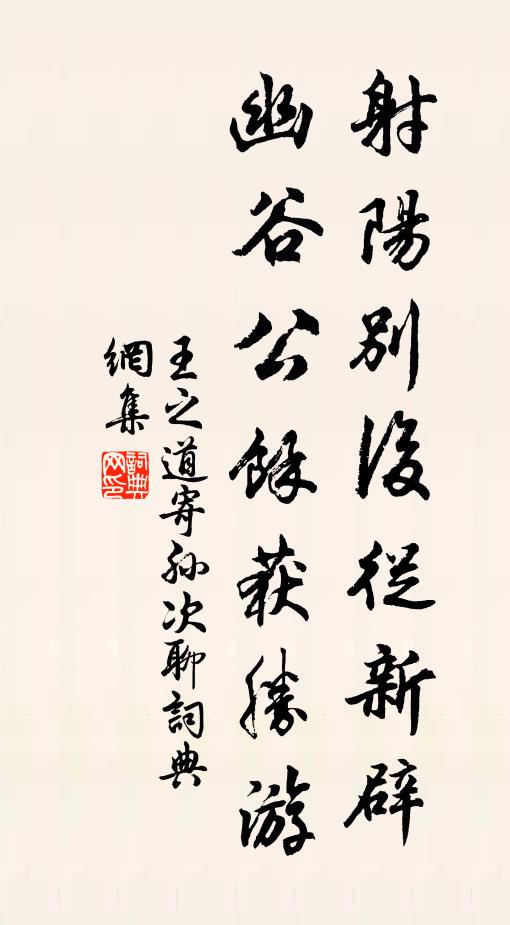 射陽別後從新辟
幽谷公餘获勝游
王之道寄孙次聊詞典
網集
詞典网印